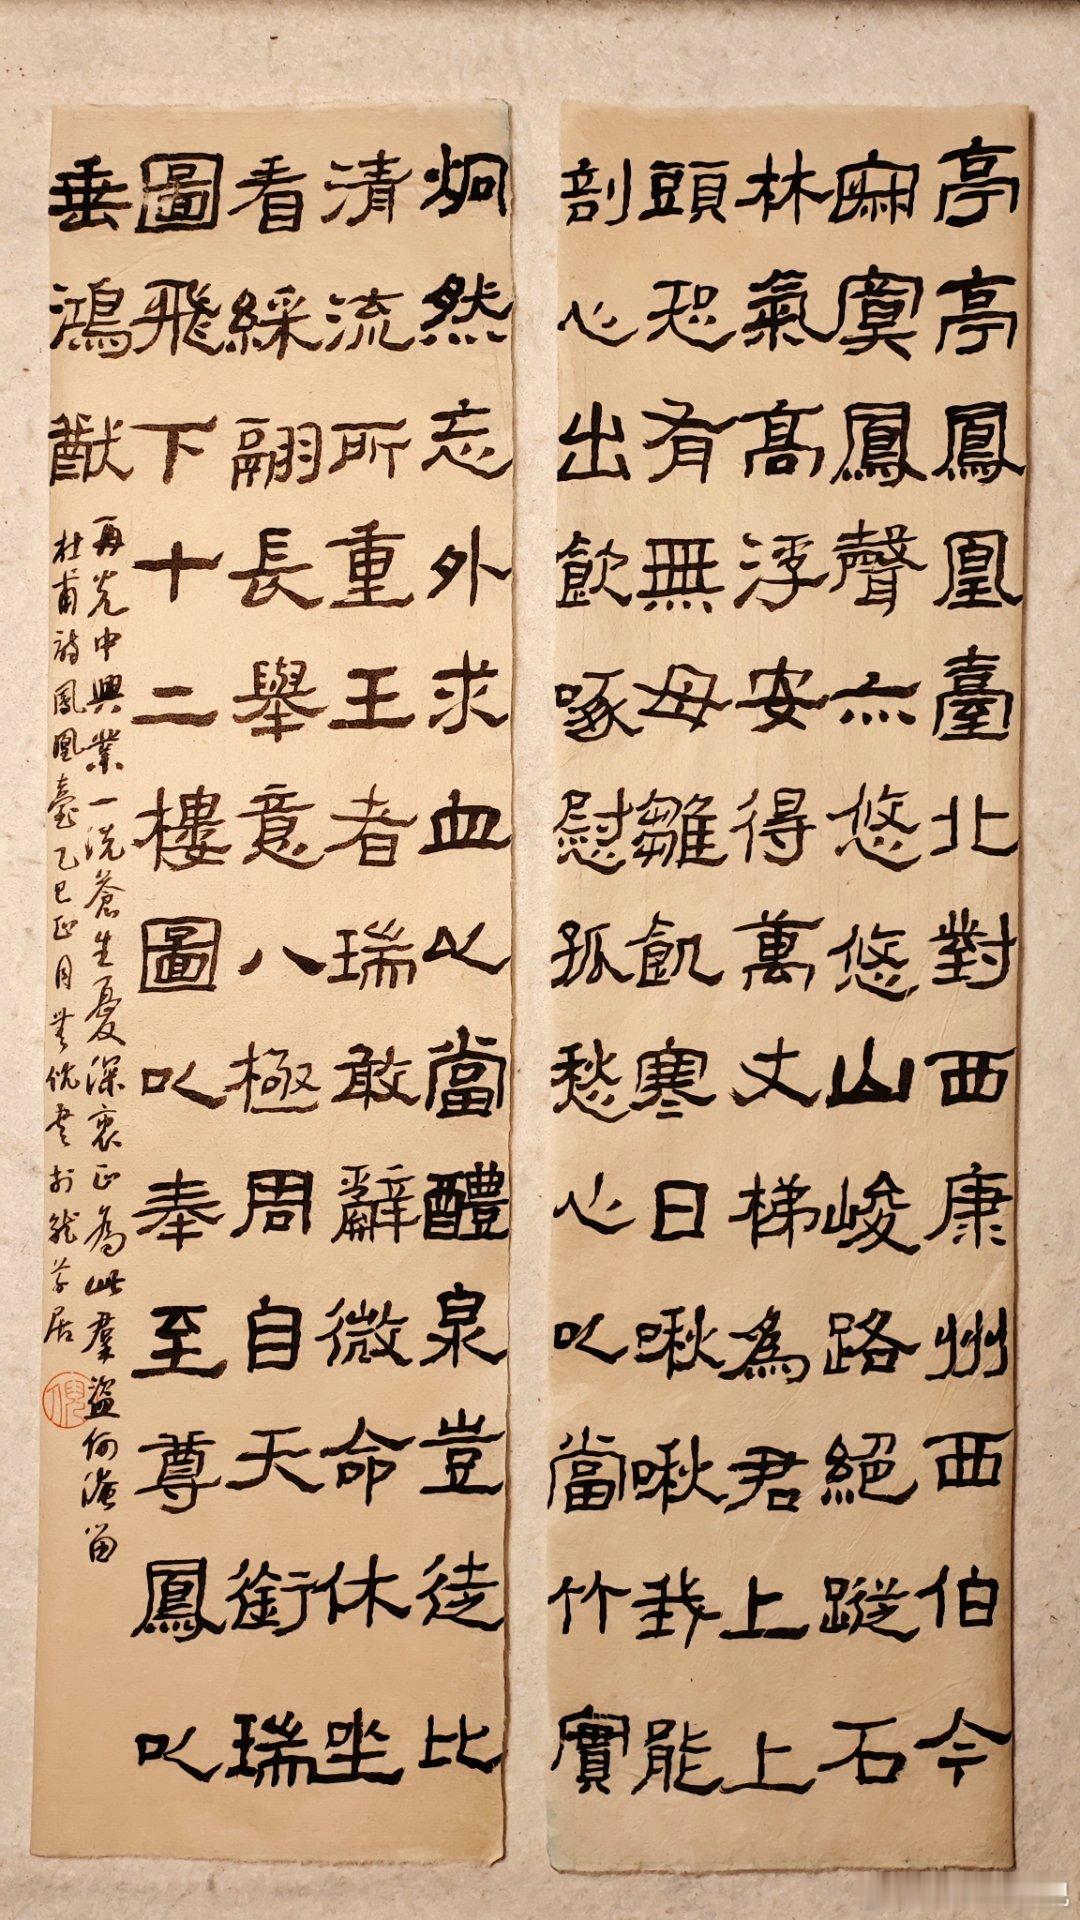 亭亭鳳凰臺北對西康州西伯今
寂寞鳳聲亦悠悠山峻路絕蹤石
林氣高浮安得萬丈梯為君上上
頭恐有無母雛飢寒日啾啾我能
剖心出飲啄慰孤愁心以當竹實
炯然忘外求血以當醴泉豈徒比
清流所重王者瑞敢辭微命休坐
看綵翮長舉意八極周自天銜瑞
圖飛下十二樓圖以奉至尊鳳以
垂鴻猷
再光中興業一洗蒼生憂深衷正為此羣盜何淹留
杜甫詩鳳凰臺乙巳正月書於居